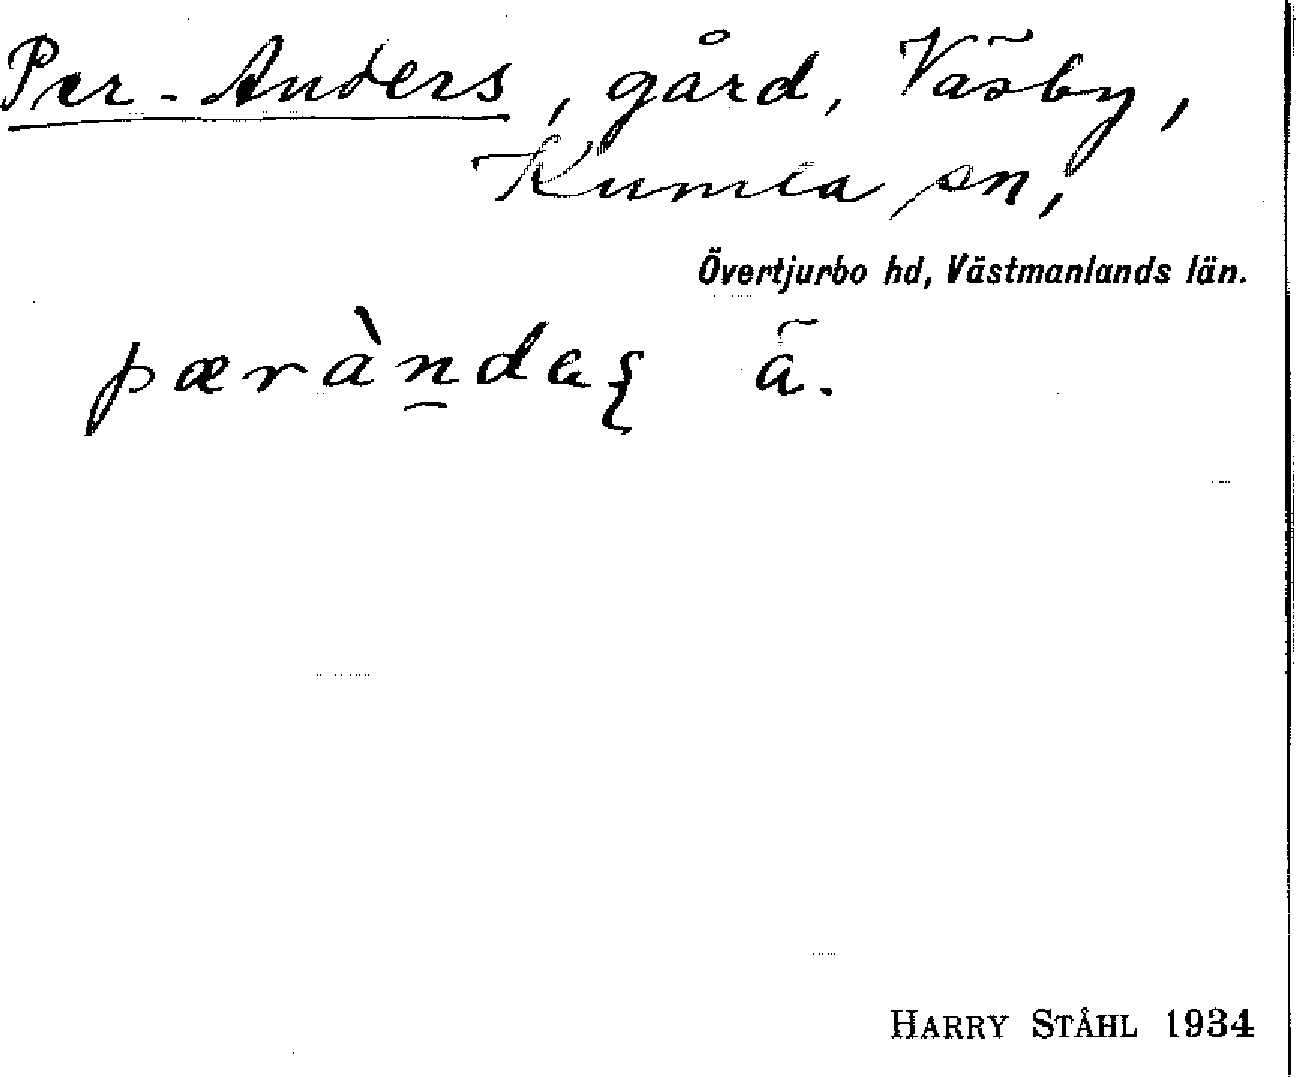 Per-Anders, gård, Väsby,
Kumla sn,
Övertjurbo hd, Västmanlands län.
ä.
HARRY STÅHL 1934